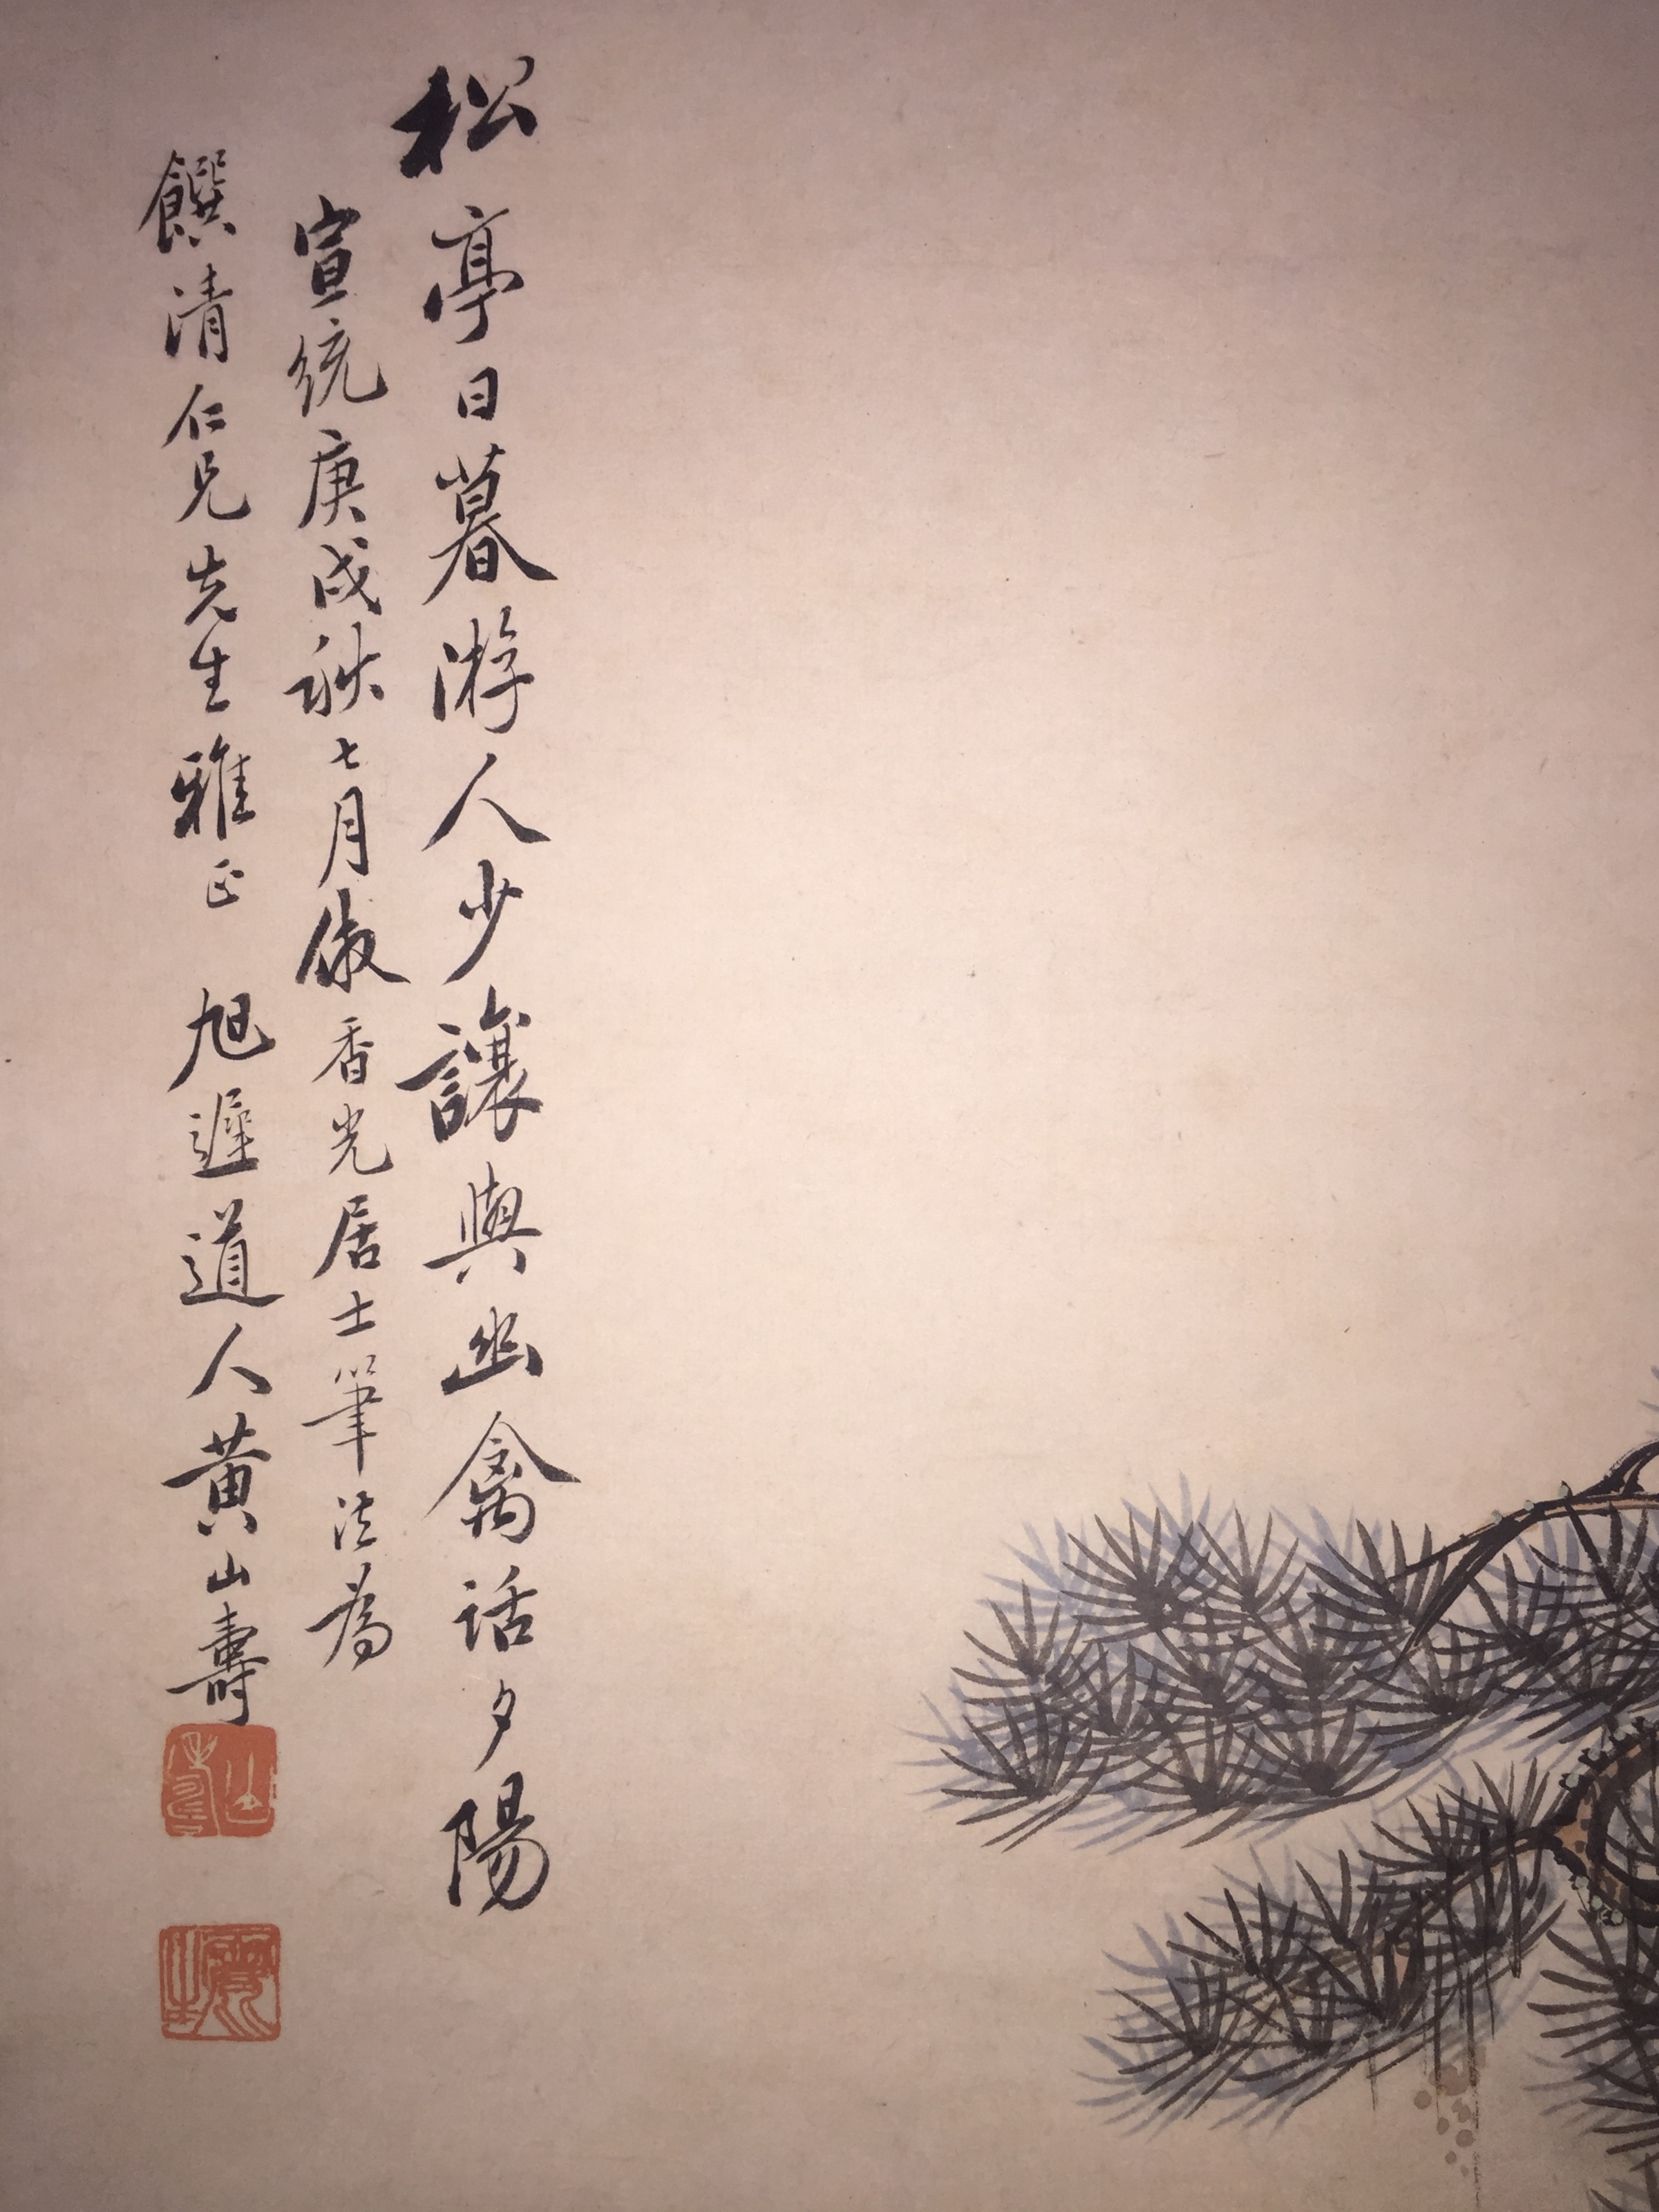 松亭日暮游人少讓與幽禽話夕陽
宣統庚戌秋七月倣香光居士筆法為
饌清仁兄先生雅正 旭遲道人黃山壽
山壽